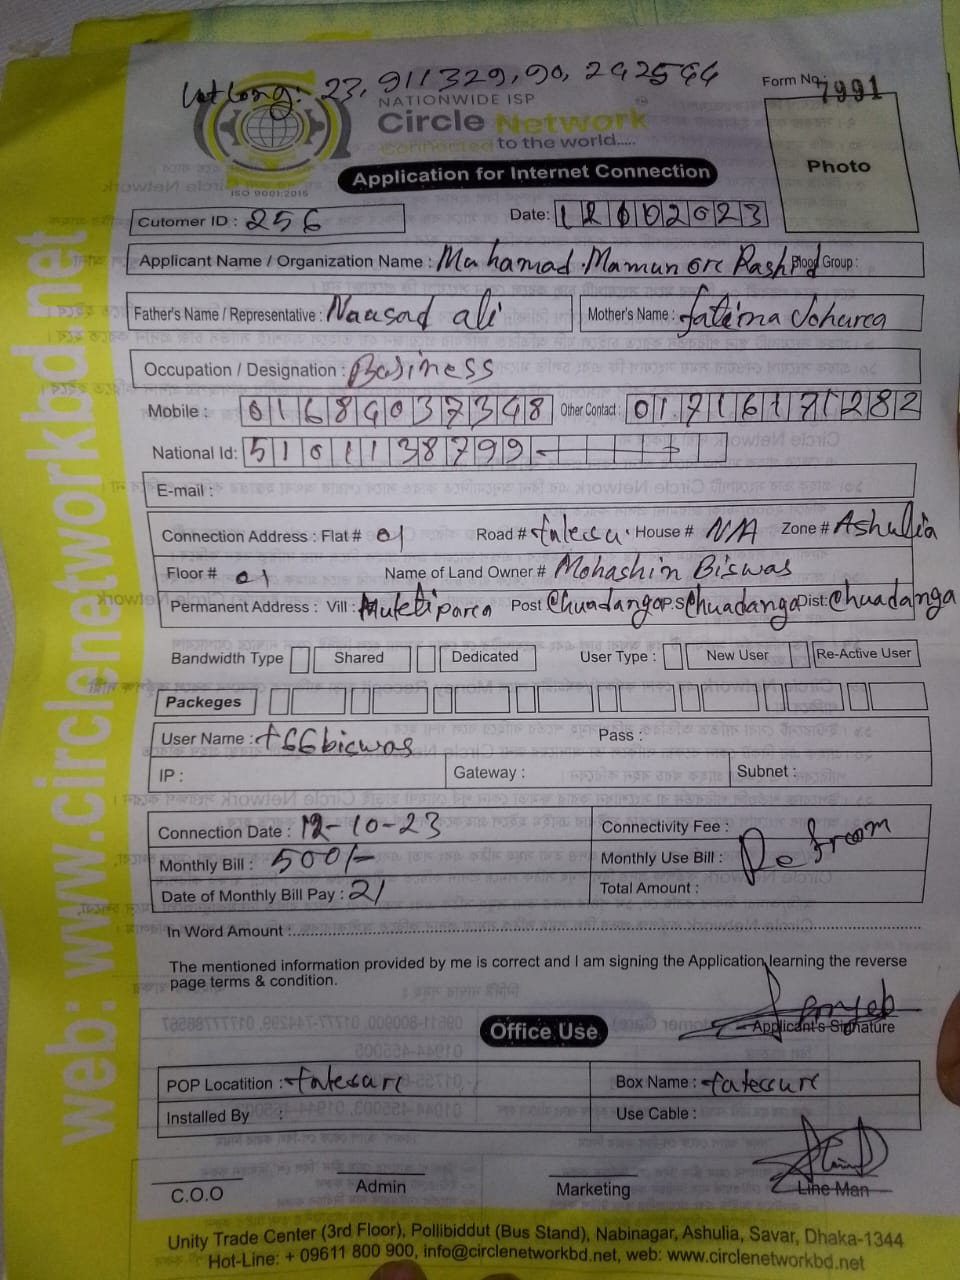 Lat Long: 23,911329,90,242544
Form No: 7991
NATIONWIDE ISP
Circle Network
Connected to the world.....
ISO 9001:2015
Photo
Application for Internet Connection
Cutomer ID : 256
Date: 12102023
Applicant Name / Organization Name : Mahamad Mamun or Rashid Blood Group :
Father's Name / Representative : Naasad ali Mother's Name : fatima Joharea
Occupation / Designation : Business
Mobile : 01684037348 Other Contact : 01716171282
National Id: 5101138799
E-mail :
Connection Address : Flat # 01 Road # House # N/A Zone # Ashulia
Floor # 01 Name of Land Owner # Mohashin Biswas
Permanent Address : Vill : Post Chuadanga P.S Chuadanga Dist: Chuadanga
Bandwidth Type Shared Dedicated User Type : New User Re-Active User
Packeges
User Name : t66biswas Pass :
IP : Gateway : Subnet :
Connection Date : 12-10-23 Connectivity Fee :
Monthly Bill : 500/- Monthly Use Bill :
Date of Monthly Bill Pay : 21 Total Amount :
In Word Amount :
The mentioned information provided by me is correct and I am signing the Application learning the reverse
page terms & condition.
Applicant's Signature
Office Use
POP Locatition : Box Name :
Installed By : Use Cable :
C.O.O Admin Marketing Line Man
Unity Trade Center (3rd Floor), Pollibiddut (Bus Stand), Nabinagar, Ashulia, Savar, Dhaka-1344
Hot-Line: + 09611 800 900, info@circlenetworkbd.net, web: www.circlenetworkbd.net
web: www.circlenetworkbd.net